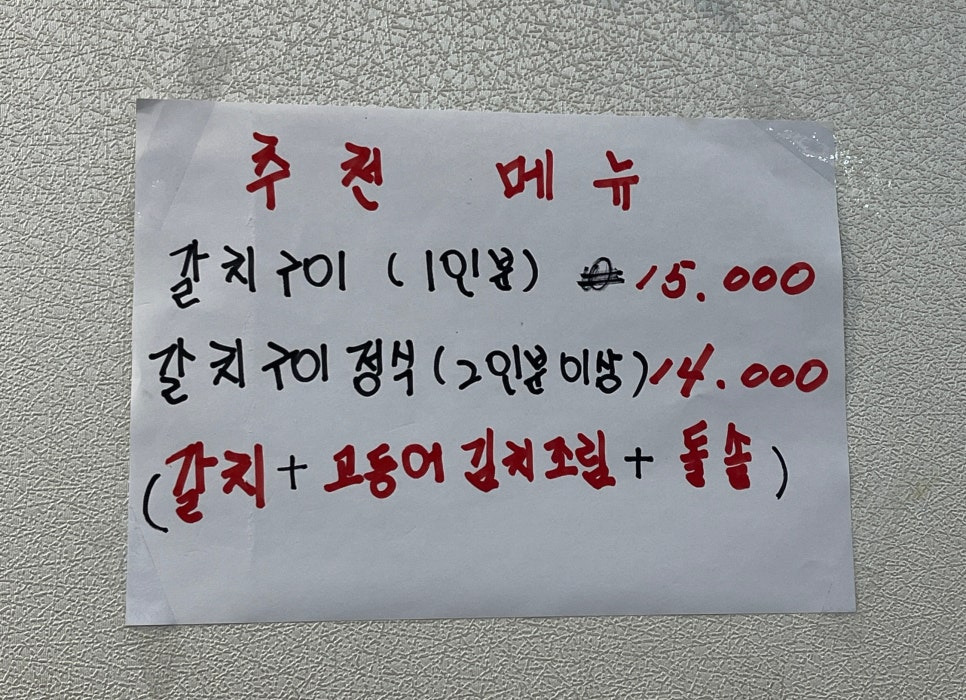 추천 메뉴
갈치구이 (1인분) 15.000
갈치구이 정식 (2인분이상) 14.000
(갈치 + 고등어 김치조림 + 돌솥)